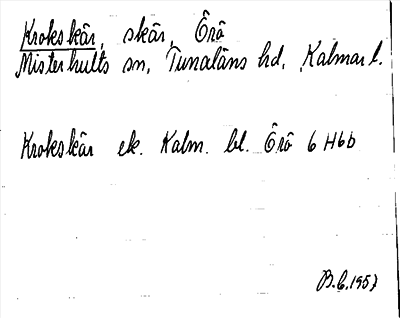 Krokskär, skär, Örö
Misterhults sn, Tunaläns hd, Kalmar l.
Krokskär ek. Kalm. bl. Örö 6 H6b
B.C. 1957